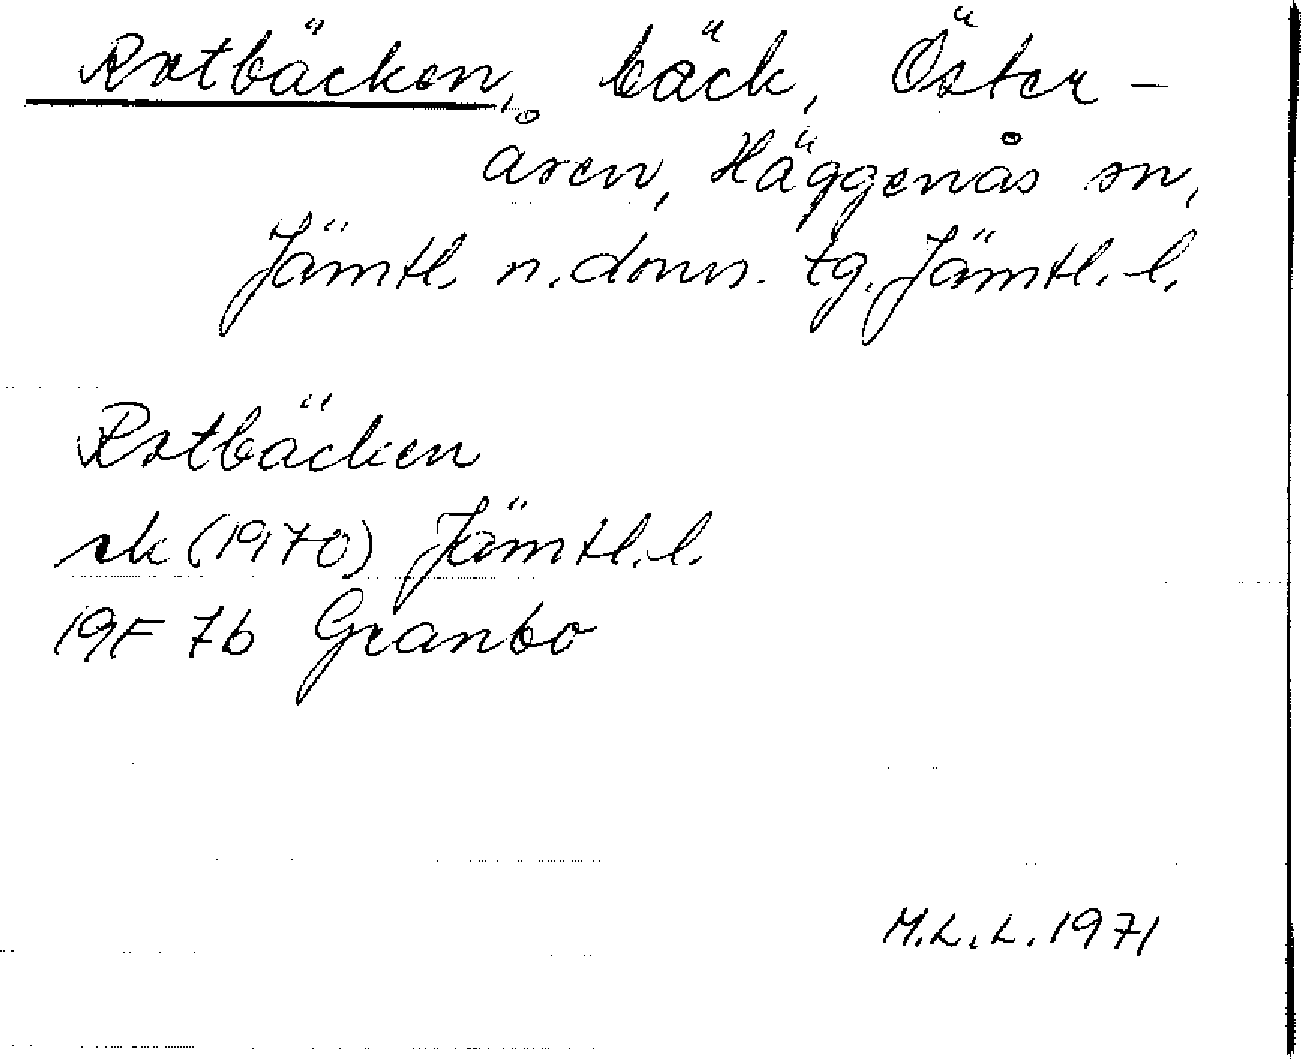 Rotbäcken, bäck, Öster-
åsen, Häggenås sn,
Jämtl. n. doms. tg. Jämtl. l.
Rotbäcken
rk (1970) Jämtl. l.
19F 7b Granbo
M.L.L. 1971